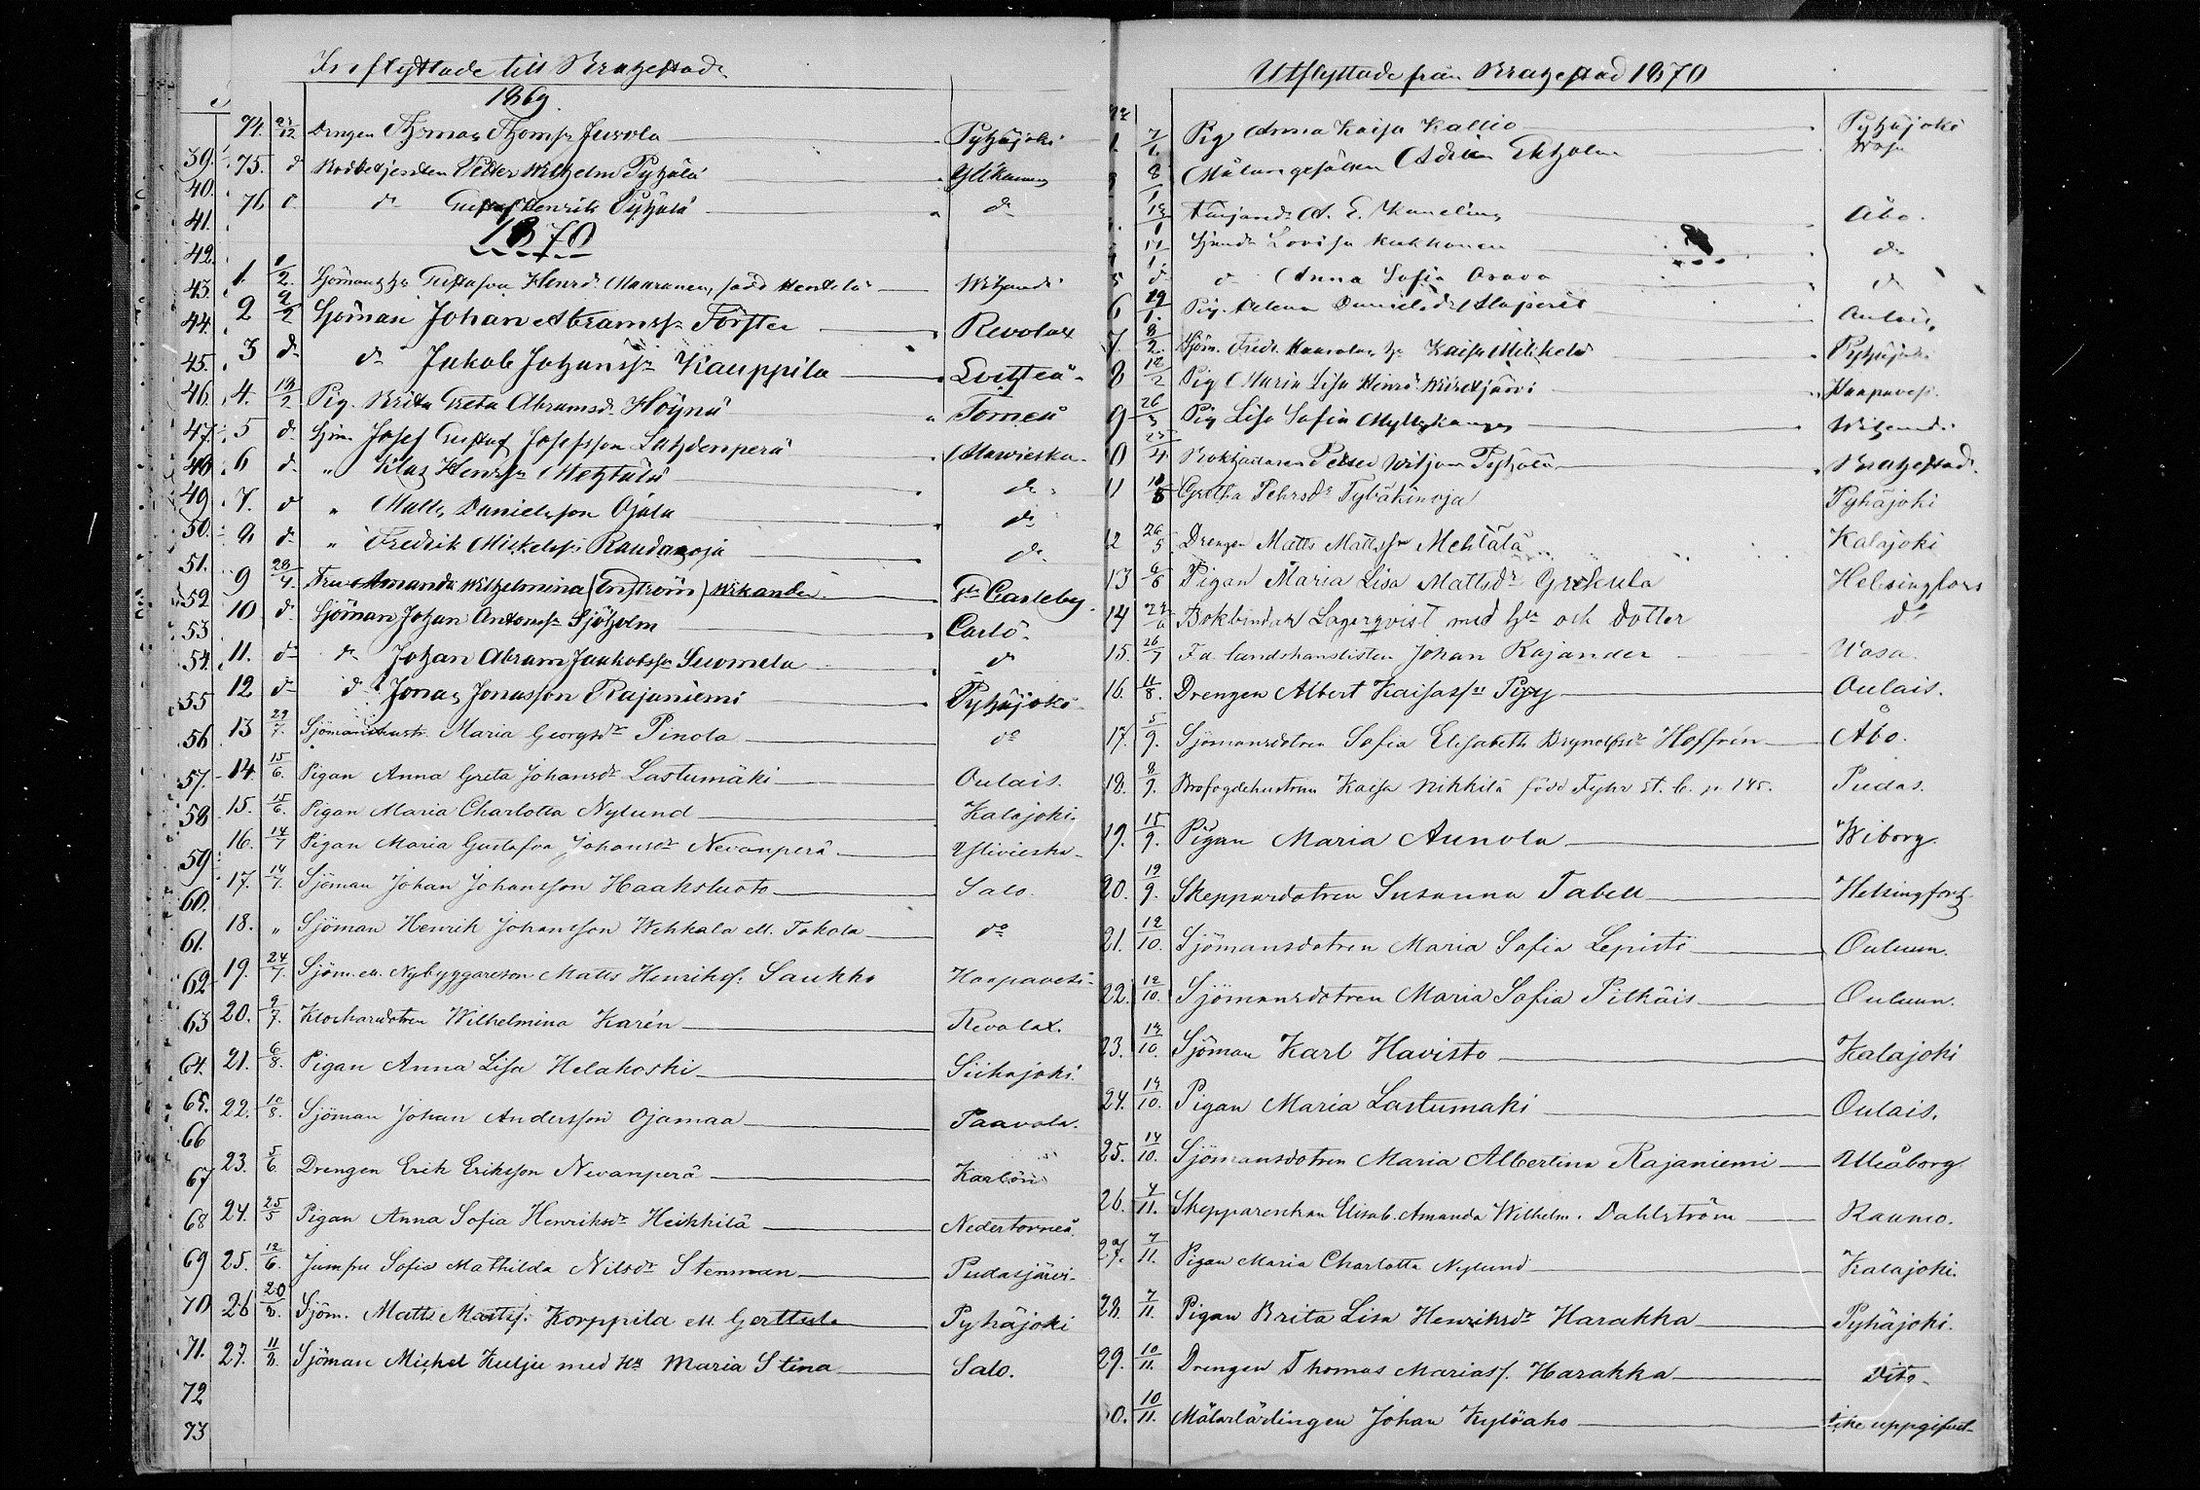 Inflyttade till Brahestad
1869.
74. 27/12 Drengen Thomas Thomss. Juvola Pyhäjoki
75. d Pehter Wilhelm Pyhälä
76 d d Gustaf Henrik Pyhälä d
1870
1. 1/2. Gustafva Henrd. Maaranen, född Wihandi
2 2/2 Sjöman Johan Abramss. Förster Revolax
3 d d Jakob Johanss. Kauppila
4. 12/2 Pig. Brita Greta Abramsd. Höynä Torneå
5 d Sjm. Josef Gustaf Josefsson Lahdenperä
6 d " Klas Henrss. Mehtälä d
7. d " Matts Danielsson Ojala d
d " Fredrik Mickelss. Raudasoja d
9 28/4. Fru Amanda Wilhelmina (Enström) Wikander Gla Carleby.
10 d Sjöman Johan Antonss. Sjöholm Carlö
11. d d Johan Abram Jaakobss. Suomela d
12 d d Jonas Jonasson Rajaniemi Pyhäjoki
13 29/7. Sjömanshustr. Maria Georgsdr Pinola do
14 15/6. Pigan Anna Greta Johansdr Lastumäki Oulais.
15. 15/6. Pigan Maria Charlotta Nylund Kalajoki.
16. 14/7 Pigan Maria Gustafva Johansdr Nevanperä Ylivieska
17. 14/7. Sjöman Johan Johansson Haaksluoto Salo.
18. " Sjöman Henrik Johansson Wehkala ell. Takola do
19. 24/7. Sjöm. ell. Nybyggareson Matts Henrikss. Saukko Haapavesi
20. 9/7. Klockardotren Wilhelmina Karén Revolax.
21. 6/8. Pigan Anna Lisa Helakoski Siikajoki.
22. 10/8. Sjöman Johan Andersson Ojamaa Paavola.
23. 5/6. Drengen Erik Eriksson Nevanperä Karlön
24. 25/5 Pigan Anna Sofia Henriksdr Heikkilä Nedertorneå.
25. 12/6. Jumfru Sofia Mathilda Nilsdr Stenman Pudasjärvi
26 20/8. Sjöm. Matts Mattss. Korppila ell Gerttula Pyhäjoki
27. 11/8. Sjöman Michel Kulju med Hu Maria Stina Salo.
39.
40.
41.
42.
43.
44.
45.
46.
47.
48.
49
50.
51.
52
53
54.
55
56.
57.
58
59
60.
61.
62
63
64.
65.
66
67
68
69
70
71.
72
73
Utflyttade från Brahestad 1870
7/1. Pig Anna Kaisa Kallio Pyhäjoki
8/1 Målaregesällen Ekholm Wasa
13/1 A. E. Åbo.
11/1. Lovisa d
5 d d Anna Sofia Orava d
6 19/1. Pig. Helena Danielsdr Oulais.
7 8/2. Sjöm. Fredr. Kaisa Pyhäjoki
8 12/2 Pig Maria Lisa Henrsd Haapavesi.
9 26/3 Pig Lisa Sofia Myllykangas Wihandi.
10 25/4. Petter Wiljam Pyhälä Brahestad.
11 10/5 Gretha Pehrsdr Pyhäjoki
12 26/5. Drengen Matts Mattsson Mehtälä Kalajoki
13 6/6 Pigan Maria Lisa Mattsdr Helsingfors
14 22/6 Bokbindar Lagerqvist med Hu och Dotter do
15. 26/7 F.d. landskanslisten Johan Rajander Wasa.
16. 11/8. Drengen Albert Kaisass. Pyy Oulais.
17. 5/9. Sjömansdotren Sofia Elisabeth Brynolfsdr Hoffrén Åbo.
18. 8/9. Brofogdehustrun Kaisa Nikkilä född Fyhr st. b. p. 145. Pudas.
19. 15/9. Pigan Maria Aunola Wiborg.
20. 19/9. Skeppardotren Susanna Tabell Helsingfors
21. 12/10. Sjömansdotren Maria Sofia Lepistö Ouluun.
22. 12/10. Sjömansdotren Maria Sofia Pitkäis Ouluun.
23. 13/10. Sjöman Karl Havisto Kalajoki
24. 14/10. Pigan Maria Lastumaki Oulais.
25. 14/10. Sjömansdotren Maria Albertina Rajaniemi Uleåborg
26. 4/11. Skepparenkan Elisab. Amanda Wilhelm. Dahlström Raumo.
27. 7/11. Pigan Maria Charlotta Nylund Kalajoki.
28. 7/11. Pigan Brita Lisa Henriksdr Harakka Pyhäjoki.
29. 10/11. Drengen Thomas Mariass. Harakka Dito
0. 10/11. Målarlärlingen Johan Kylöaho icke uppgifvet